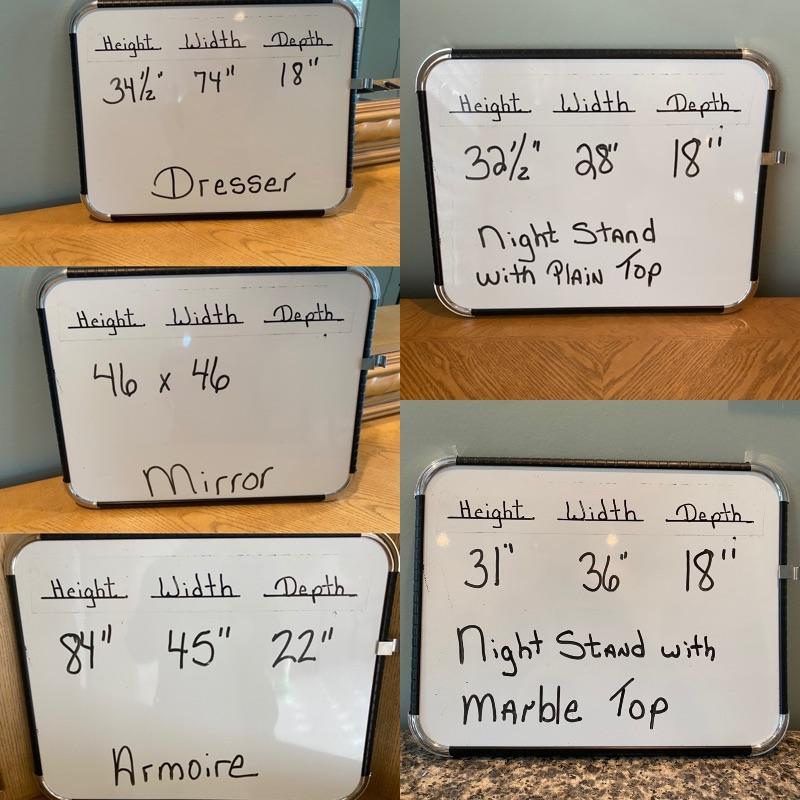 Height Width Depth
34½" 74" 18"
Dresser
Height Width Depth
46 x 46
Mirror
Height Width Depth
84" 45" 22"
Armoire
Height Width Depth
32½" 28" 18"
Night Stand
with Plain Top
Height Width Depth
31" 36" 18"
Night Stand with
Marble Top